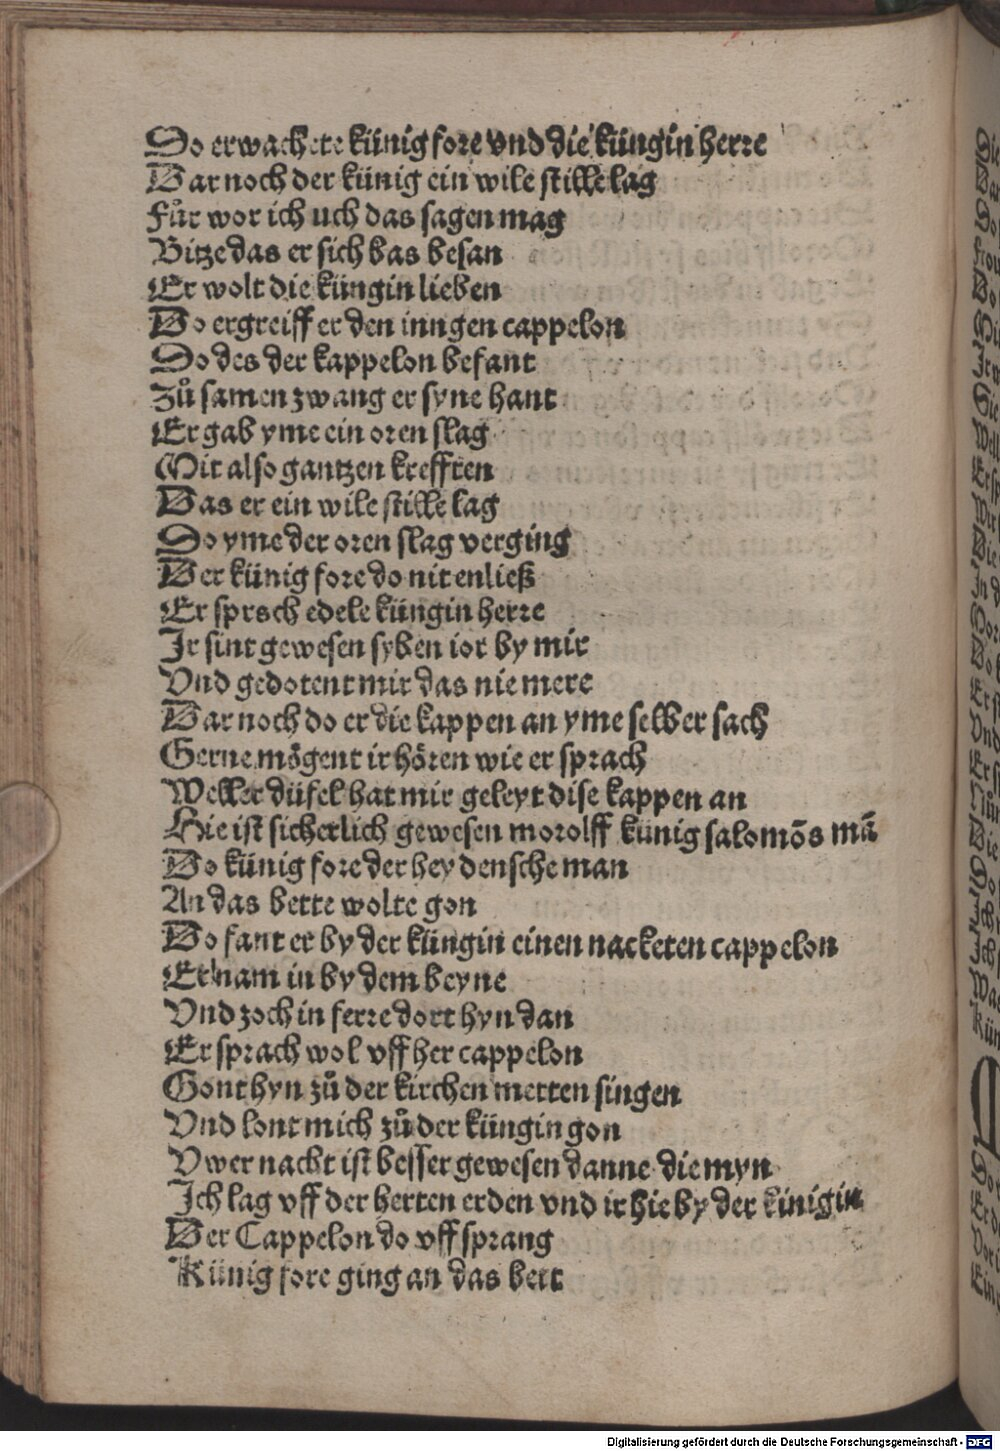 So erwachete künig fore vnd die küngin herre
Dar noch der künig ein wile stille lag
Fůr wor ich uch das sagen mag
Bitze das er sich bas besan
Er wolt die küngin lieben
Do ergreiff er den inngen cappelon
So des der kappelon befant
Zů samen zwang er syne hant
Er gab yme ein oren slag
Mit also gantzen krefften
Das er ein wile stille lag
So yme der oren slag verging
Der künig fore do nit enließ
Er sprach edele küngin herre
Ir sint gewesen syben ior by mir
Vnd gedotent mir das nie mere
Dar noch do er die kappen an yme selber sach
Gerne mögent ir hören wie er sprach
Weller düfel hat mir geleyt dise kappen an
Hie ist sicherlich gewesen morolff künig salomōs mā
Do künig fore der heydensche man
An das bette wolte gon
Do fant er by der küngin einen nacketen cappelon
Er nam in by dem beyne
Vnd zoch in ferre dort hyn dan
Er sprach wol vff her cappelon
Gont hyn zů der kirchen metten singen
Vnd lont mich zů der küngin gon
Vwer nacht ist besser gewesen danne die myn
Ich lag vff der herten erden vnd ir hie by der kinigin
Der Cappelon do vff sprang
Künig fore ging an das bett
Digitalisierung gefördert durch die Deutsche Forschungsgemeinschaft - DFG